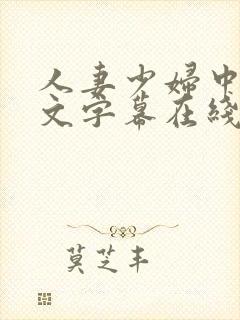 人妻少婦中
文字幕在綫
莫芝丰